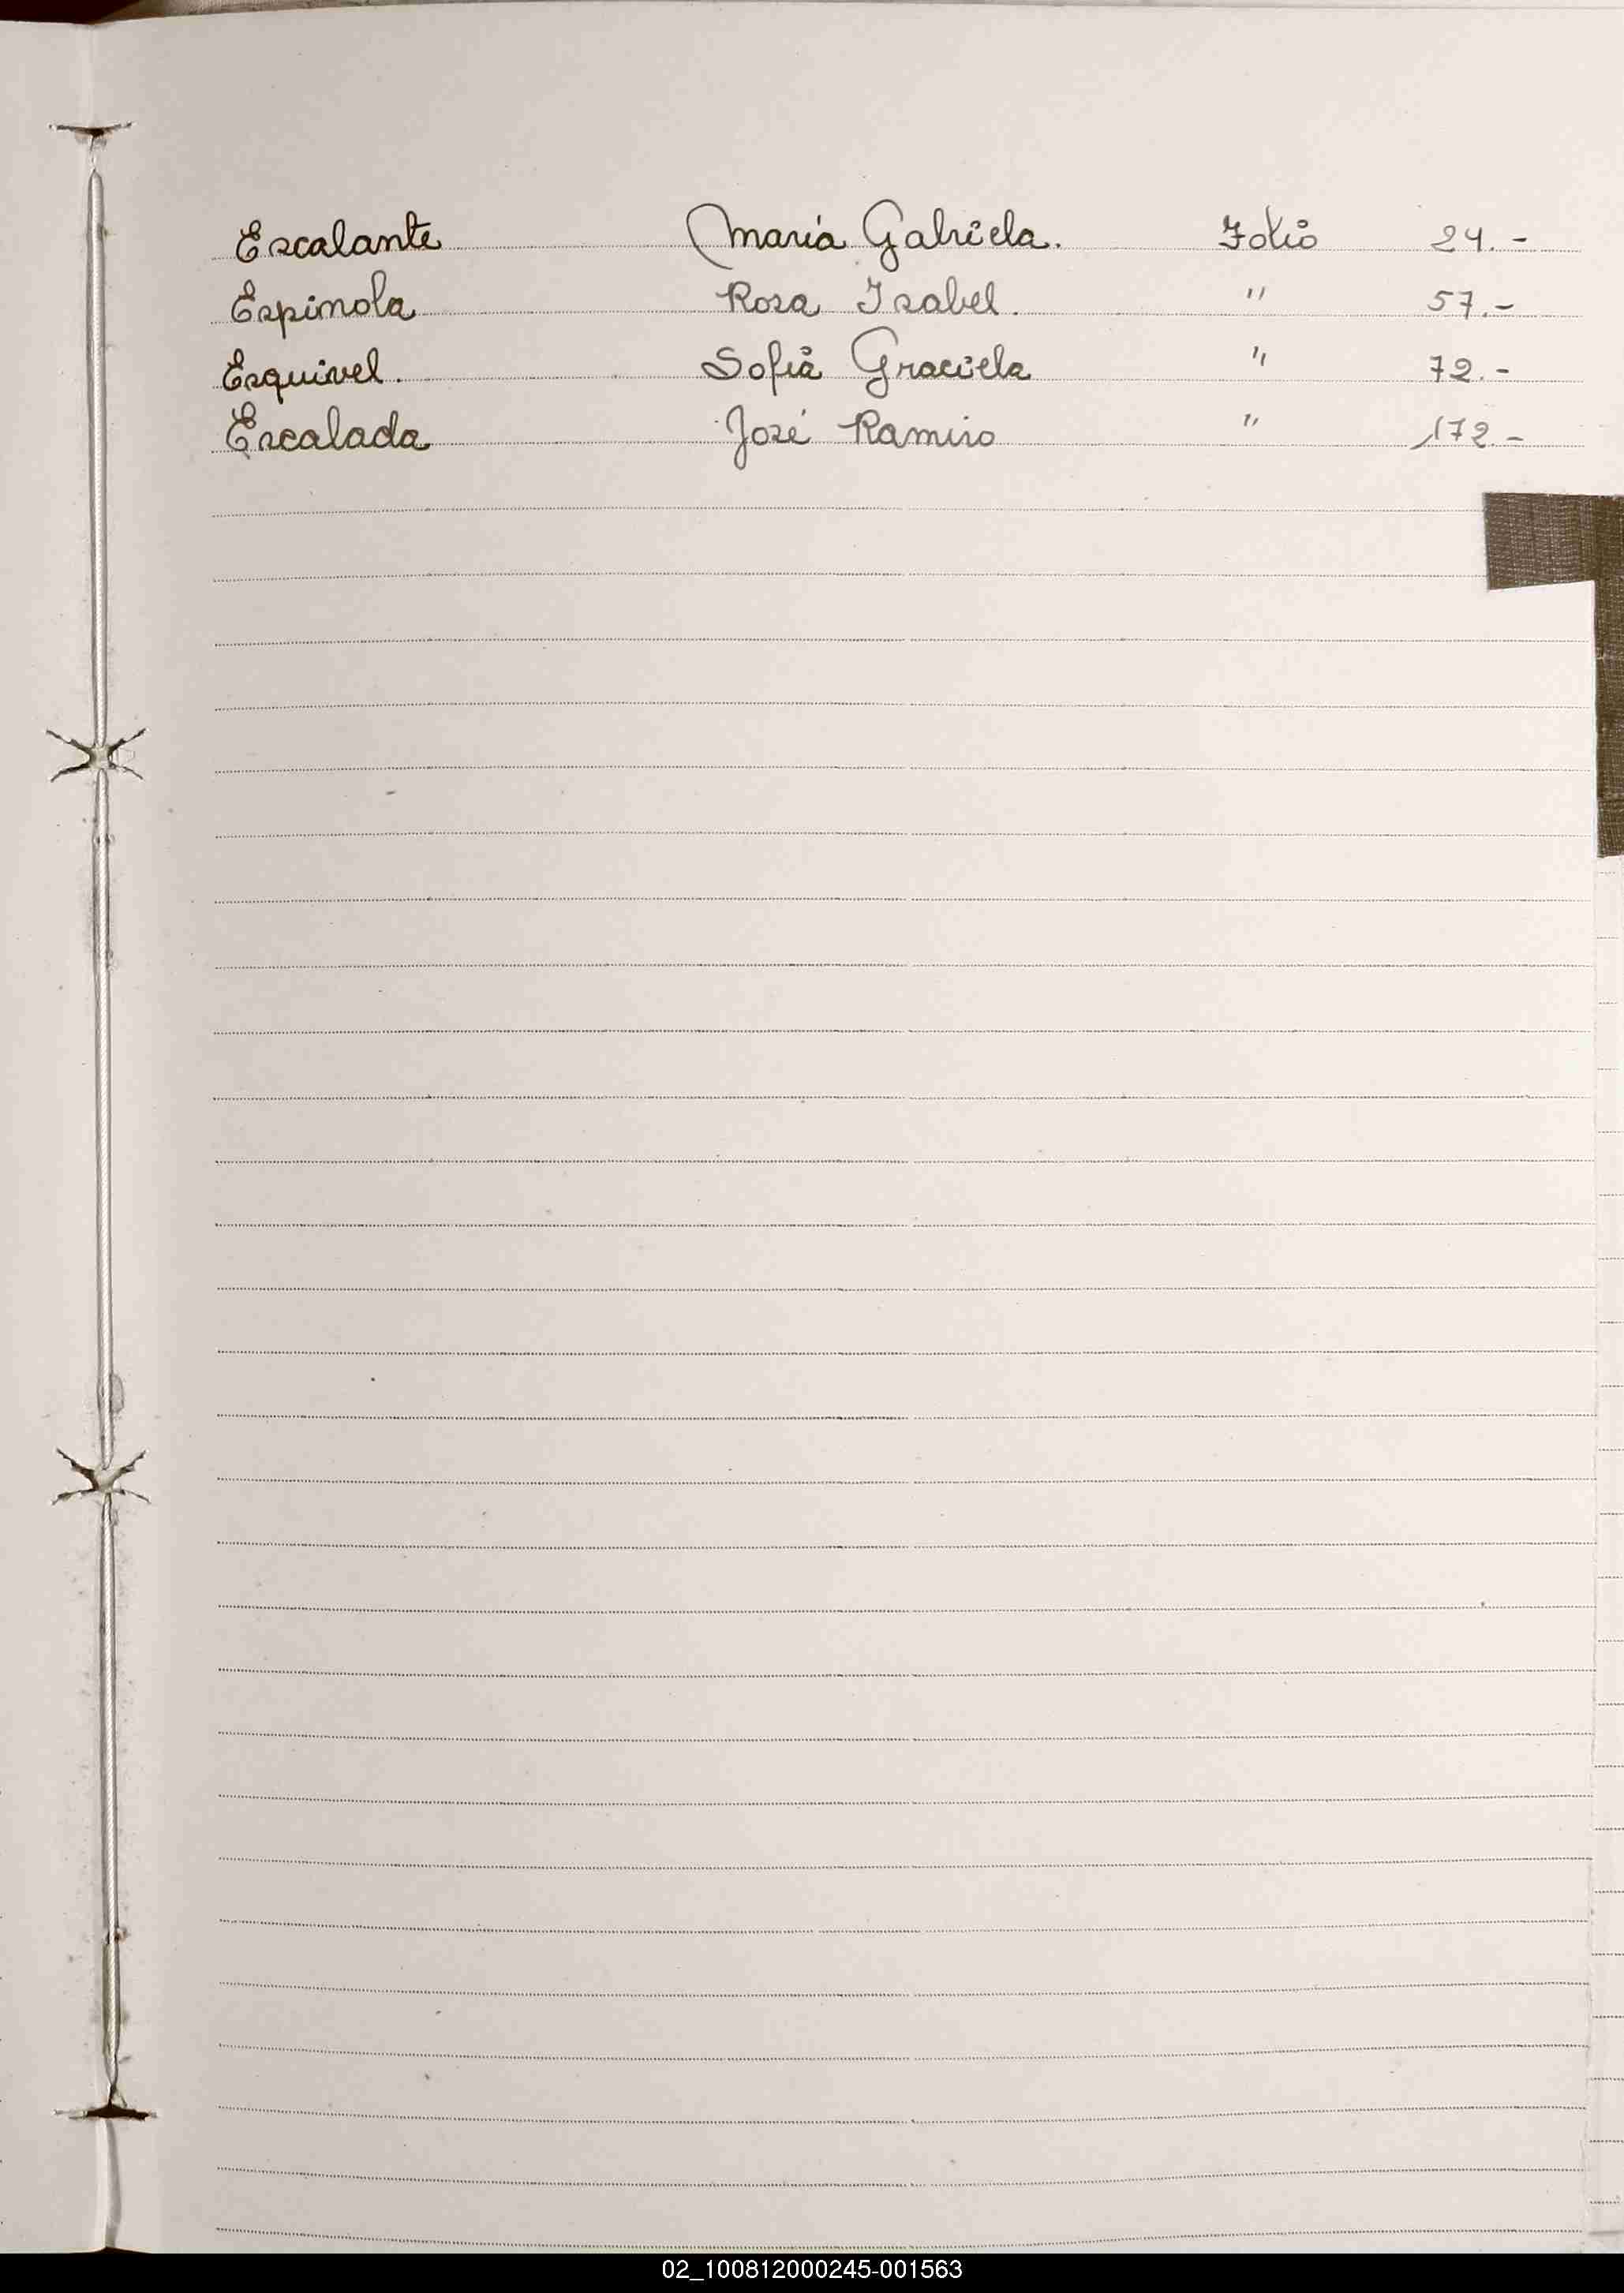 Escalante María Gabriela. Folio 24.-
Espinola Rosa Isabel. " 57.-
Esquivel. Sofia Graciela " 72.-
Escalada José Ramiro " 172-
02_100812000245-001563